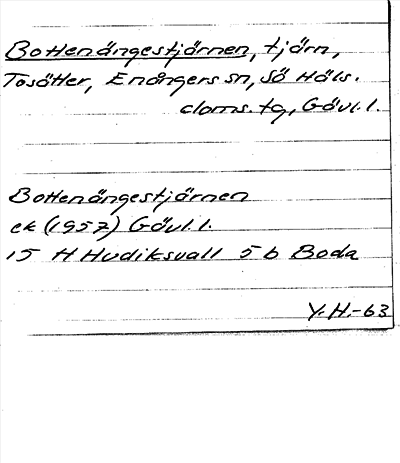 Bottenängestjärnen, tjärn,
Tosätter, Enångers sn, Sö Häls.
doms. tg, Gävl. l.
Bottenängestjärnen
ek (1957) Gävl. l.
15 H Hudiksvall 5 b Boda
Y. H. -63